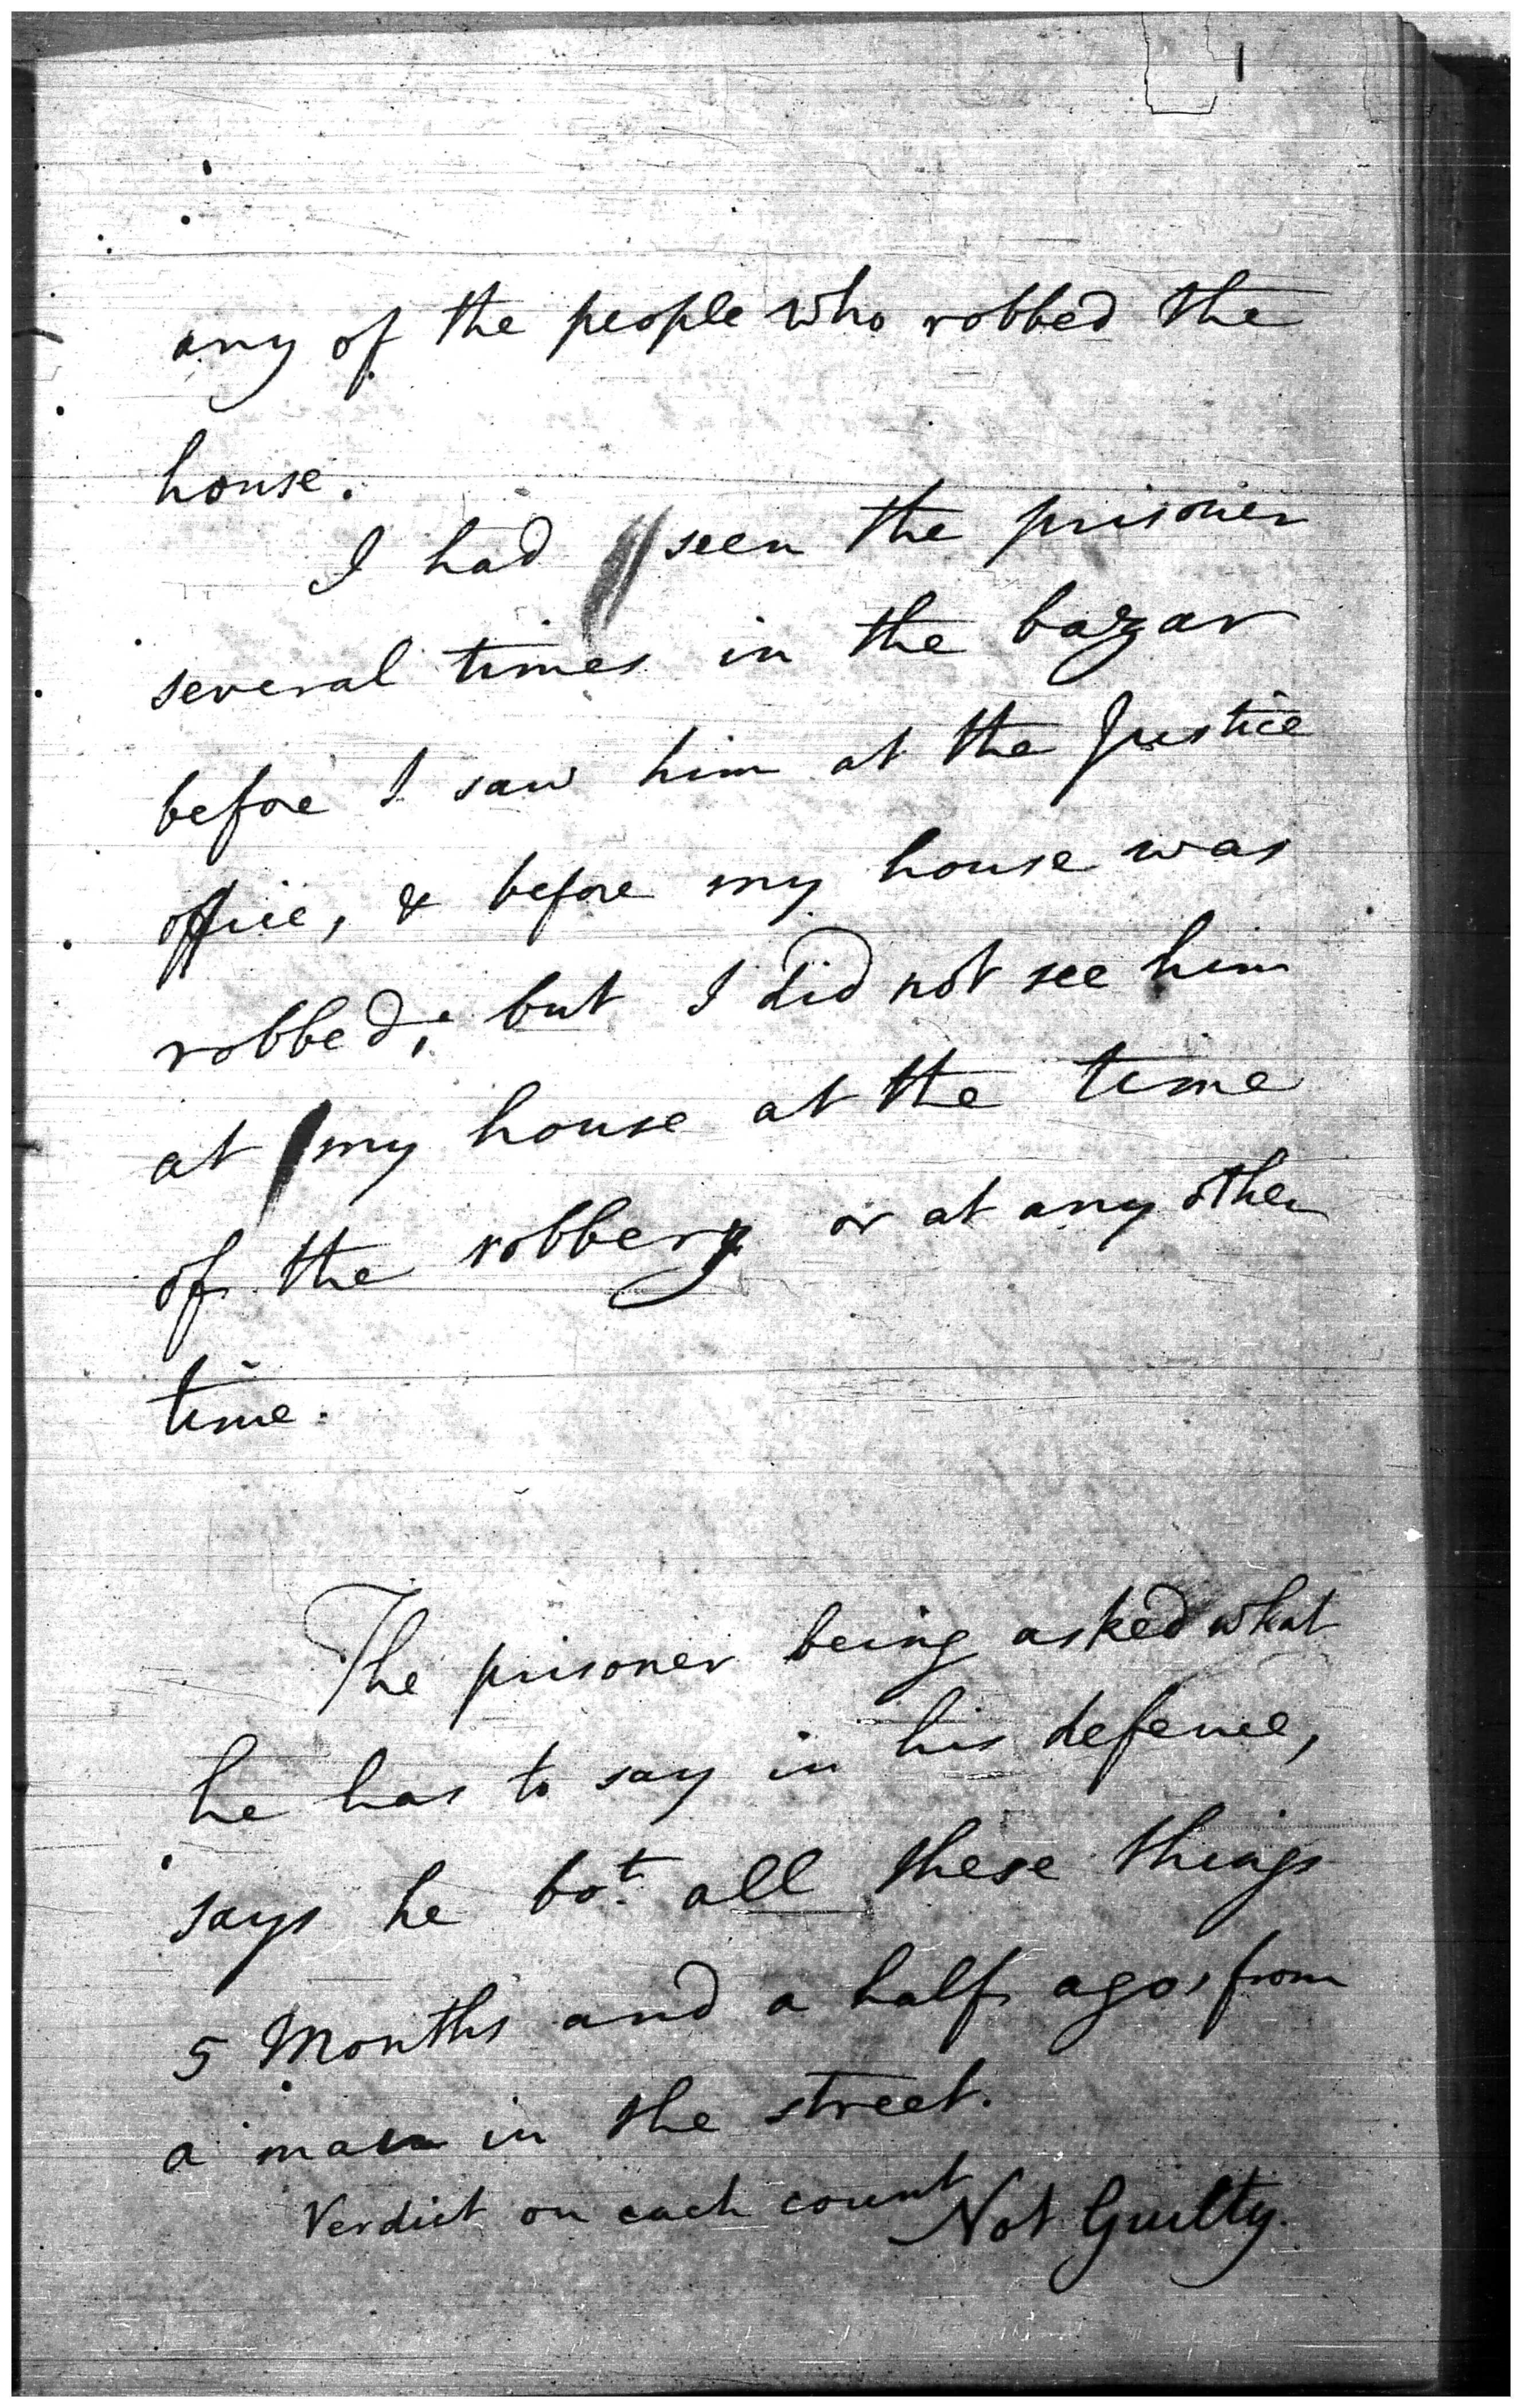 any of the people who robbed the
house.
I had seen the prisoner
several times in the bazar
before I saw him at the Justice
office, & before my house was
robbed; but I did not see him
at my house at the time
of the robbery or at any other
time.
The prisoner being asked what
he has to say in his defence,
says he bot. all these things
5 Months and a half ago, from
a man in the street.
Verdict on each count Not Guilty.